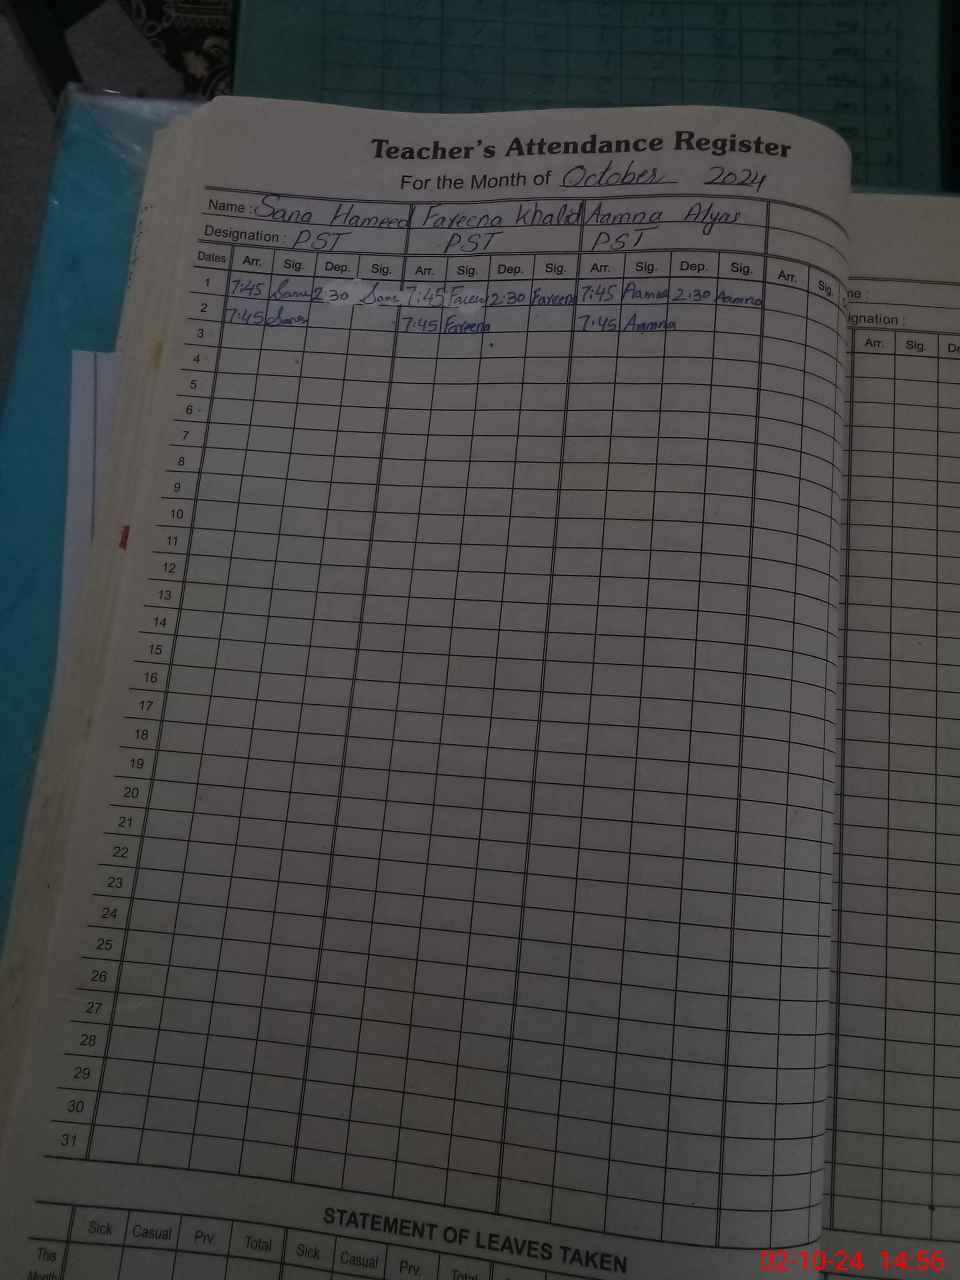 Teacher's Attendance Register
For the Month of October 2024
Name : Sana Hameed Fareena Khalid Aamna Alyas
Designation : PST PST PST
Dates Arr. Sig. Dep. Sig. Arr. Sig. Dep. Sig. Arr. Sig. Dep. Sig. Arr. Sig.
1 7:45 Sana 2:30 Sana 7:45 Fareen 2:30 Fareena 7:45 Aamna 2:30 Aamna
2 7:45 Sana 7:45 Fareena 7:45 Aamna
3
4
5
6
7
8
9
10
11
12
13
14
15
16
17
18
19
20
21
22
23
24
25
26
27
28
29
30
31
STATEMENT OF LEAVES TAKEN
Sick Casual Prv. Total Sick Casual Prv. Total
This
Month
me :
ignation :
Arr. Sig. De
02-10-24 14:56